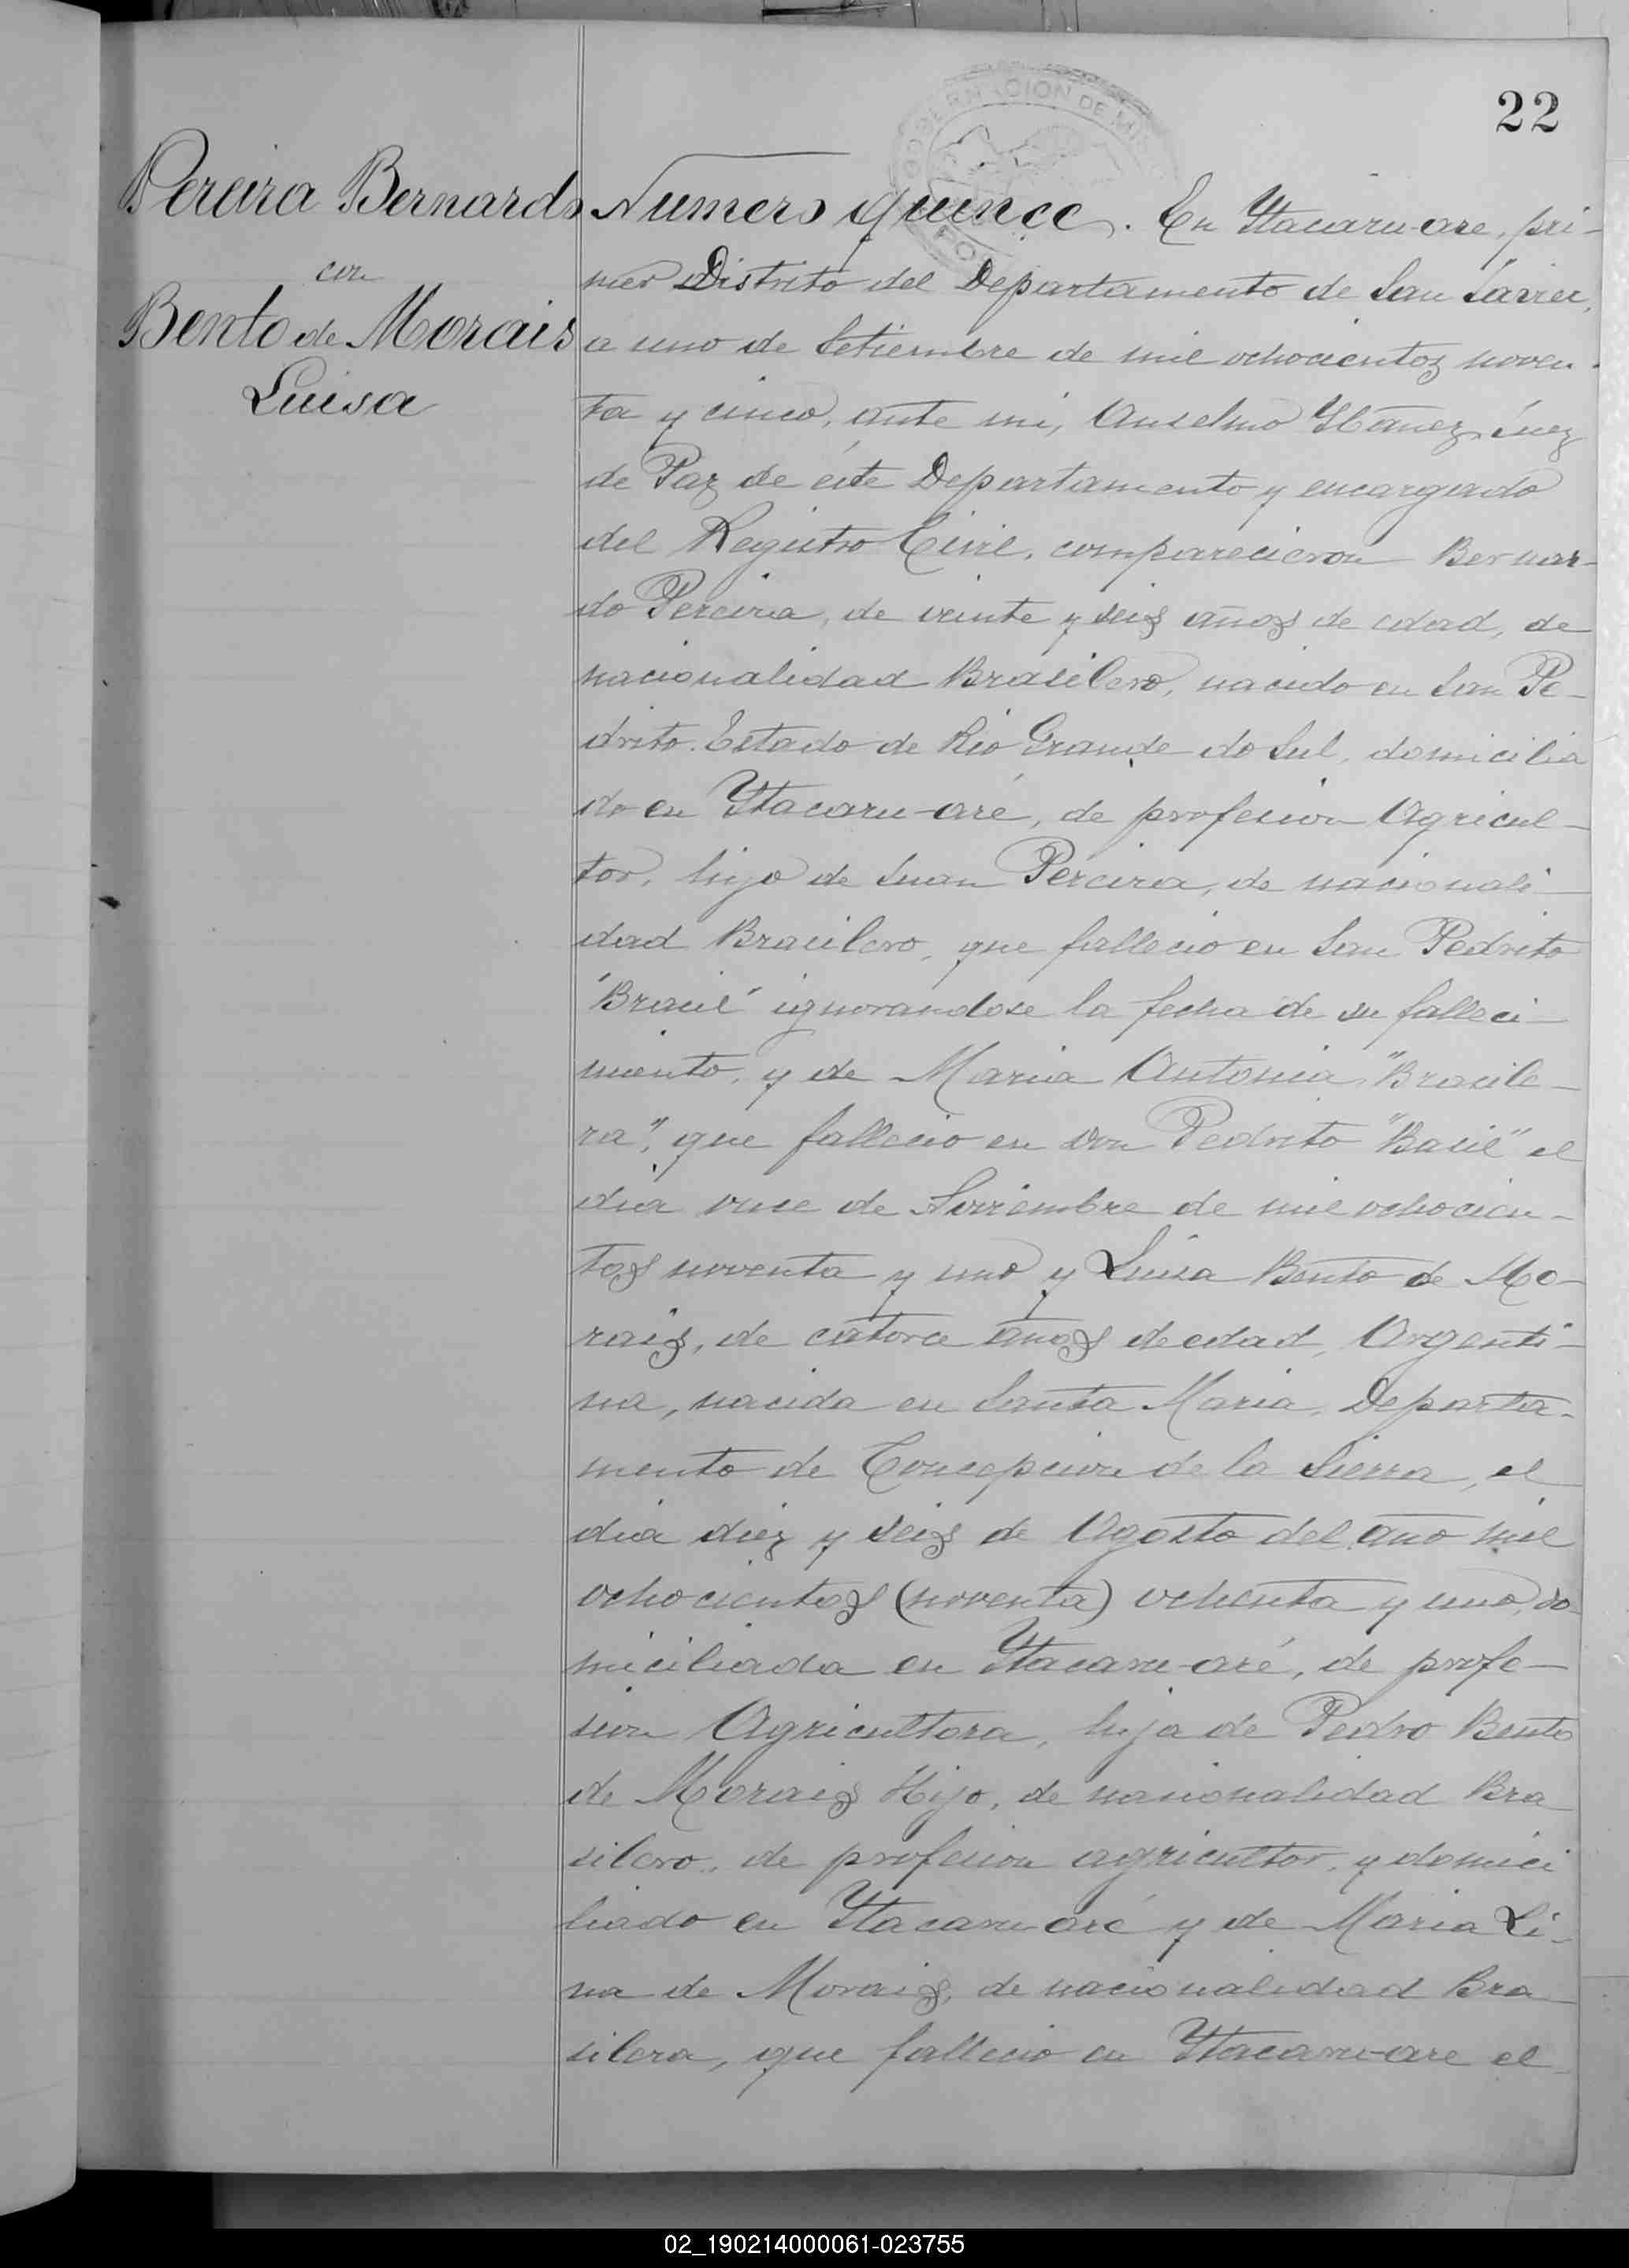 22
GOBERNACION DE MIS
Pereira Bernardo
con
Bento de Morais
Luisa
Numero quince. En Ytacaru-are, pri-
mer Distrito del Departamento de San Javier,
a uno de Setiembre de mil ochocientos noven-
ta y cinco, ante mi, Anselmo Ybañez Juez
de Paz de éste Departamento y encargado
del Registro Civil, comparecieron Bernar-
do Pereira, de veinte y seis años de edad, de
nacionalidad Brasilero, nacido en San Pe-
drito. Estado de Rio Grande do Sul, domicilia
do en Ytacaru-aré, de profesion Agricul-
tor, hijo de Juan Pereira, de nacionali-
dad Bracilero, que fallecio en San Pedrito
"Bracil" ignorandose la fecha de su falleci-
miento, y de Maria Antonia "Bracile-
ra", que fallecio en Don Pedrito "Basil" el
dia once de Noviembre de mil ochocien-
tos noventa y uno y Luisa Bento de Mo-
rais, de catorce años de edad, Argenti-
na, nacida en Santa Maria, Departa-
mento de Concepcion de la Sierra, el
dia diez y seis de Agosto del año mil
ochocientos (noventa) ochenta y uno, do-
miciliada en Ytacaru-aré, de profe-
sion Agricultora, hija de Pedro Bento
de Morais Hijo, de nacionalidad Bra
silero, de profesion agricultor, y domici
liado en Ytacaru aré y de Maria Li-
na de Morais, de nacionalidad Bra
silera, que fallecio en Ytacaru-are el
02_190214000061-023755